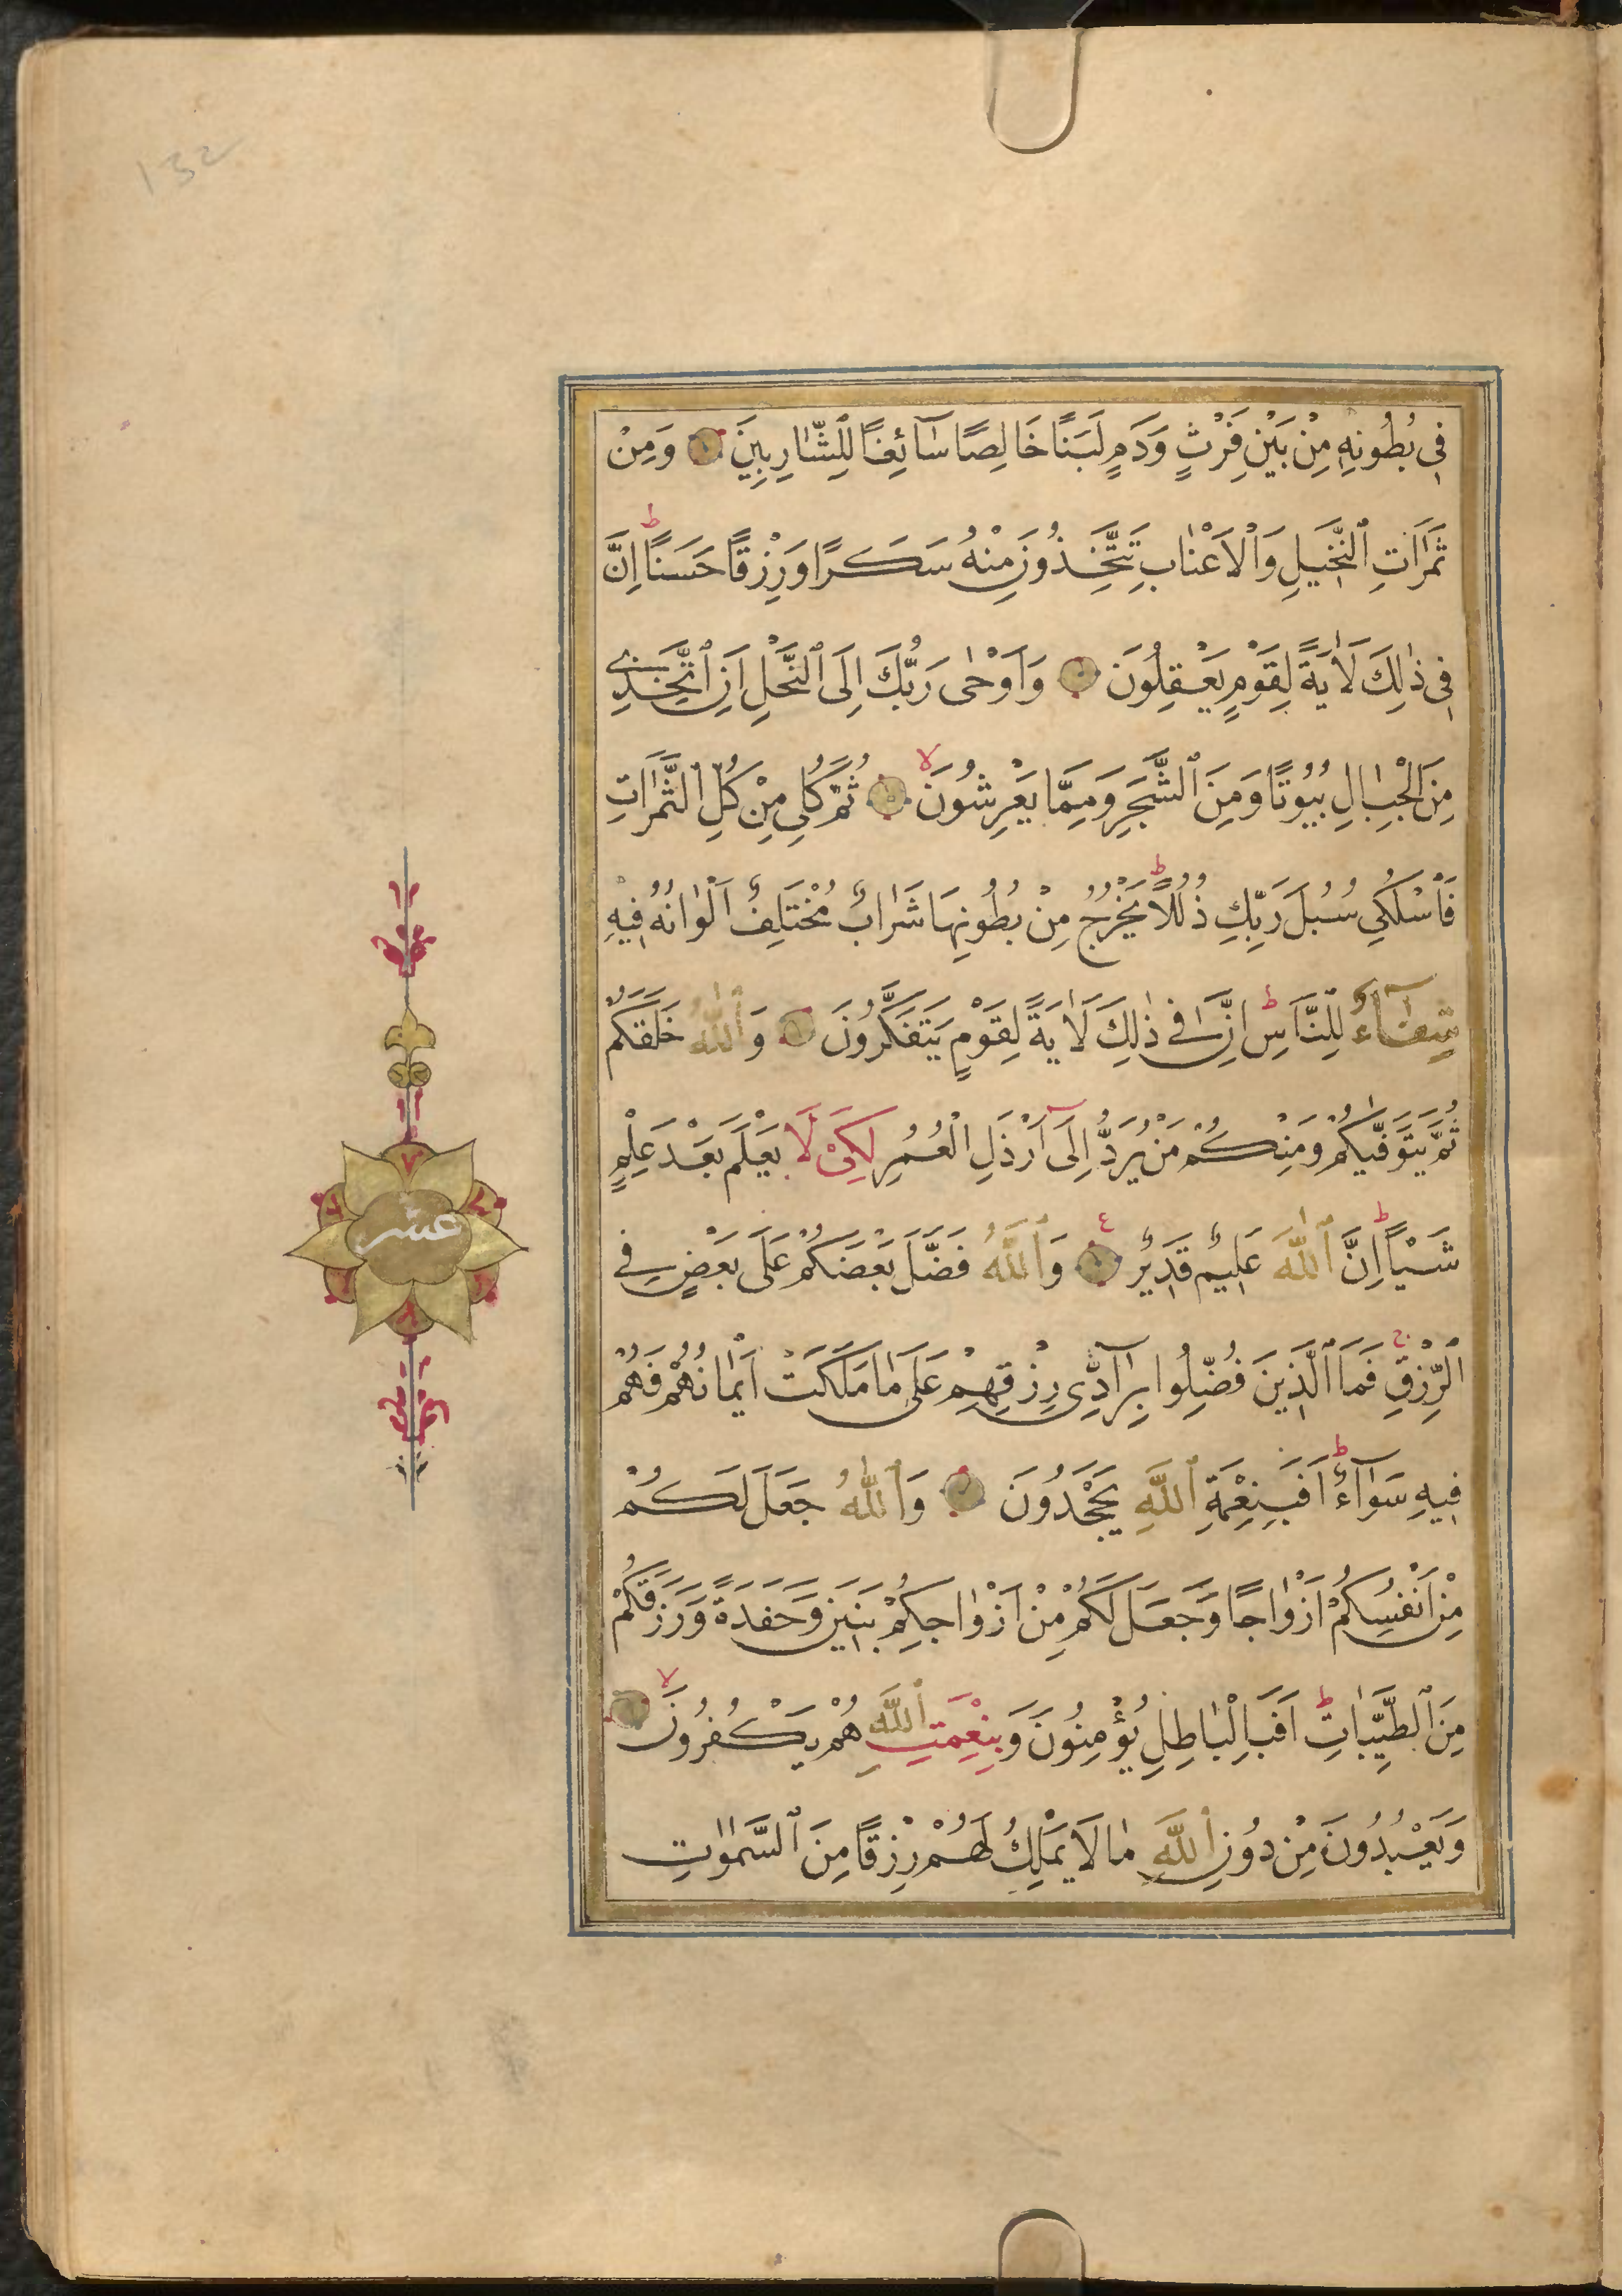 132
فِى بُطُونِهٖ مِنْ بَيْنِ فَرْثٍ وَدَمٍ لَبَنًا خَالِصًا سَآئِغًا لِلشَّارِبِينَ وَمِنْ
ثَمَرَاتِ ٱلنَّخِيلِ وَٱلْاَعْنَابِ تَتَّخِذُونَ مِنْهُ سَكَرًا وَرِزْقًا حَسَنًا ط اِنَّ
فِى ذٰلِكَ لَاٰيَةً لِقَوْمٍ يَعْقِلُونَ وَاَوْحٰى رَبُّكَ اِلَى ٱلنَّحْلِ اَنِ ٱتَّخِذِى
مِنَ ٱلْجِبَالِ بُيُوتًا وَمِنَ ٱلشَّجَرِ وَمِمَّا يَعْرِشُونَ لا ثُمَّ كُلِى مِنْ كُلِّ ٱلثَّمَرَاتِ
فَٱسْلُكِى سُبُلَ رَبِّكِ ذُلُلًا ط يَخْرُجُ مِنْ بُطُونِهَا شَرَابٌ مُخْتَلِفٌ اَلْوَانُهُ فِيهِ
شِفَآءٌ لِلنَّاسِ ط اِنَّ فِى ذٰلِكَ لَاٰيَةً لِقَوْمٍ يَتَفَكَّرُونَ وَٱللّٰهُ خَلَقَكُمْ
ثُمَّ يَتَوَفّٰيكُمْ وَمِنْكُمْ مَنْ يُرَدُّ اِلَىٓ اَرْذَلِ ٱلْعُمُرِ لِكَىْ لَا يَعْلَمَ بَعْدَ عِلْمٍ
شَيْـًٔا ط اِنَّ ٱللّٰهَ عَلِيمٌ قَدِيرٌ ع وَٱللّٰهُ فَضَّلَ بَعْضَكُمْ عَلٰى بَعْضٍ فِى
ٱلرِّزْقِ ج فَمَا ٱلَّذِينَ فُضِّلُوا بِرَآدِّى رِزْقِهِمْ عَلٰى مَا مَلَكَتْ اَيْمَانُهُمْ فَهُمْ
فِيهِ سَوَآءٌ ط اَفَبِنِعْمَةِ ٱللّٰهِ يَجْحَدُونَ وَٱللّٰهُ جَعَلَ لَكُمْ
مِنْ اَنْفُسِكُمْ اَزْوَاجًا وَجَعَلَ لَكُمْ مِنْ اَزْوَاجِكُمْ بَنِينَ وَحَفَدَةً وَرَزَقَكُمْ
مِنَ ٱلطَّيِّبَاتِ ط اَفَبِالْبَاطِلِ يُؤْمِنُونَ وَبِنِعْمَتِ ٱللّٰهِ هُمْ يَكْفُرُونَ لا
وَيَعْبُدُونَ مِنْ دُونِ ٱللّٰهِ مَا لَا يَمْلِكُ لَهُمْ رِزْقًا مِنَ ٱلسَّمٰوَاتِ
عشر